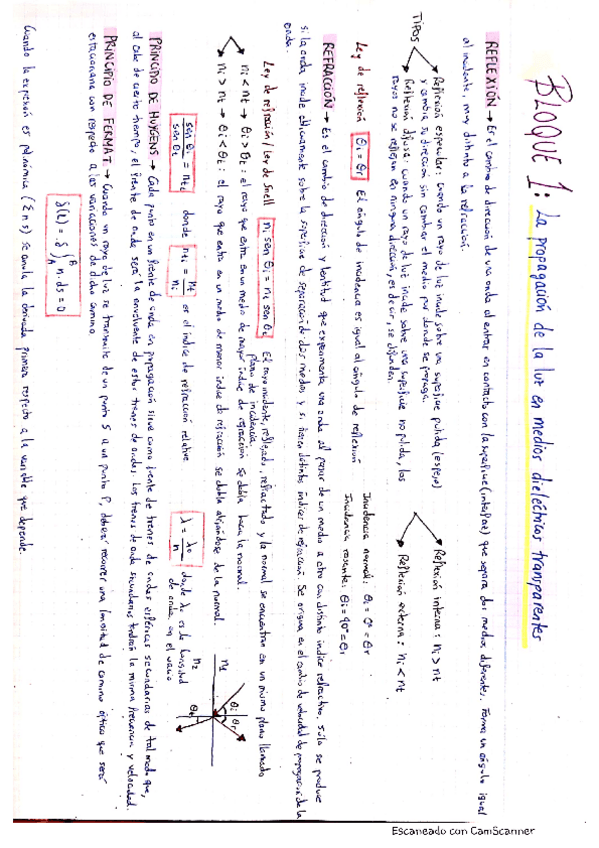 BLOQUE 1: La propagación de la luz en medios dieléctricos transparentes
REFLEXIÓN → Es el cambio de dirección de una onda al entrar en contacto con la superficie (interfase) que separa dos medios diferentes. Forma un ángulo igual
al incidente, muy distinto a la refracción.
TIPOS
Reflexión especular: cuando un rayo de luz incide sobre una superficie pulida (espejo)
y cambia su dirección sin cambiar el medio por donde se propaga.
Reflexión difusa: cuando un rayo de luz incide sobre una superficie no pulida, los
rayos no se reflejan en ninguna dirección, es decir, se difunden.
Reflexión interna: ni > nt
Reflexión externa: ni < nt
Ley de reflexión θi = θr El ángulo de incidencia es igual al ángulo de reflexión
Incidencia normal: θi = 0° = θr
Incidencia rasante: θi = 90° = θr
REFRACCIÓN → Es el cambio de dirección y lentitud que experimenta una onda al pasar de un medio a otro con distinto índice refractivo. Sólo se produce
si la onda incide oblicuamente sobre la superficie de separación de dos medios y si tienen distintos índices de refracción. Se origina en el cambio de velocidad de propagación de la
onda.
Ley de refracción / Ley de Snell ni sen θi = nt sen θt El rayo incidente, reflejado, refractado y la normal se encuentran en un mismo plano llamado
plano de incidencia.
ni < nt → θi > θt : el rayo que entra en un medio de mayor índice de refracción se dobla hacia la normal.
ni > nt → θi < θt : el rayo que entra en un medio de menor índice de refracción se dobla alejándose de la normal.
sen θi / sen θt = nti donde nti = nt / ni es el índice de refracción relativo
λ = λ0 / n donde λ0 es la longitud
de onda en el vacío
n1 θi θr
n2 θt
PRINCIPIO DE HUYGENS → Cada punto en un frente de onda en propagación sirve como fuente de trenes de ondas esféricas secundarias de tal modo que,
al cabo de cierto tiempo, el frente de onda será la envolvente de estos trenes de ondas. Los trenes de onda secundarios tendrán la misma frecuencia y velocidad.
PRINCIPIO DE FERMAT → Cuando un rayo de luz se transmite de un punto S a un punto P, deberá recorrer una longitud de camino óptico que será
estacionaria con respecto a las variaciones de dicho camino.
δ(L) = δ ∫A B n · ds = 0
Cuando la expresión es polinómica (Σ n s) se anula la derivada primera respecto a la variable que depende.
Escaneado con CamScanner